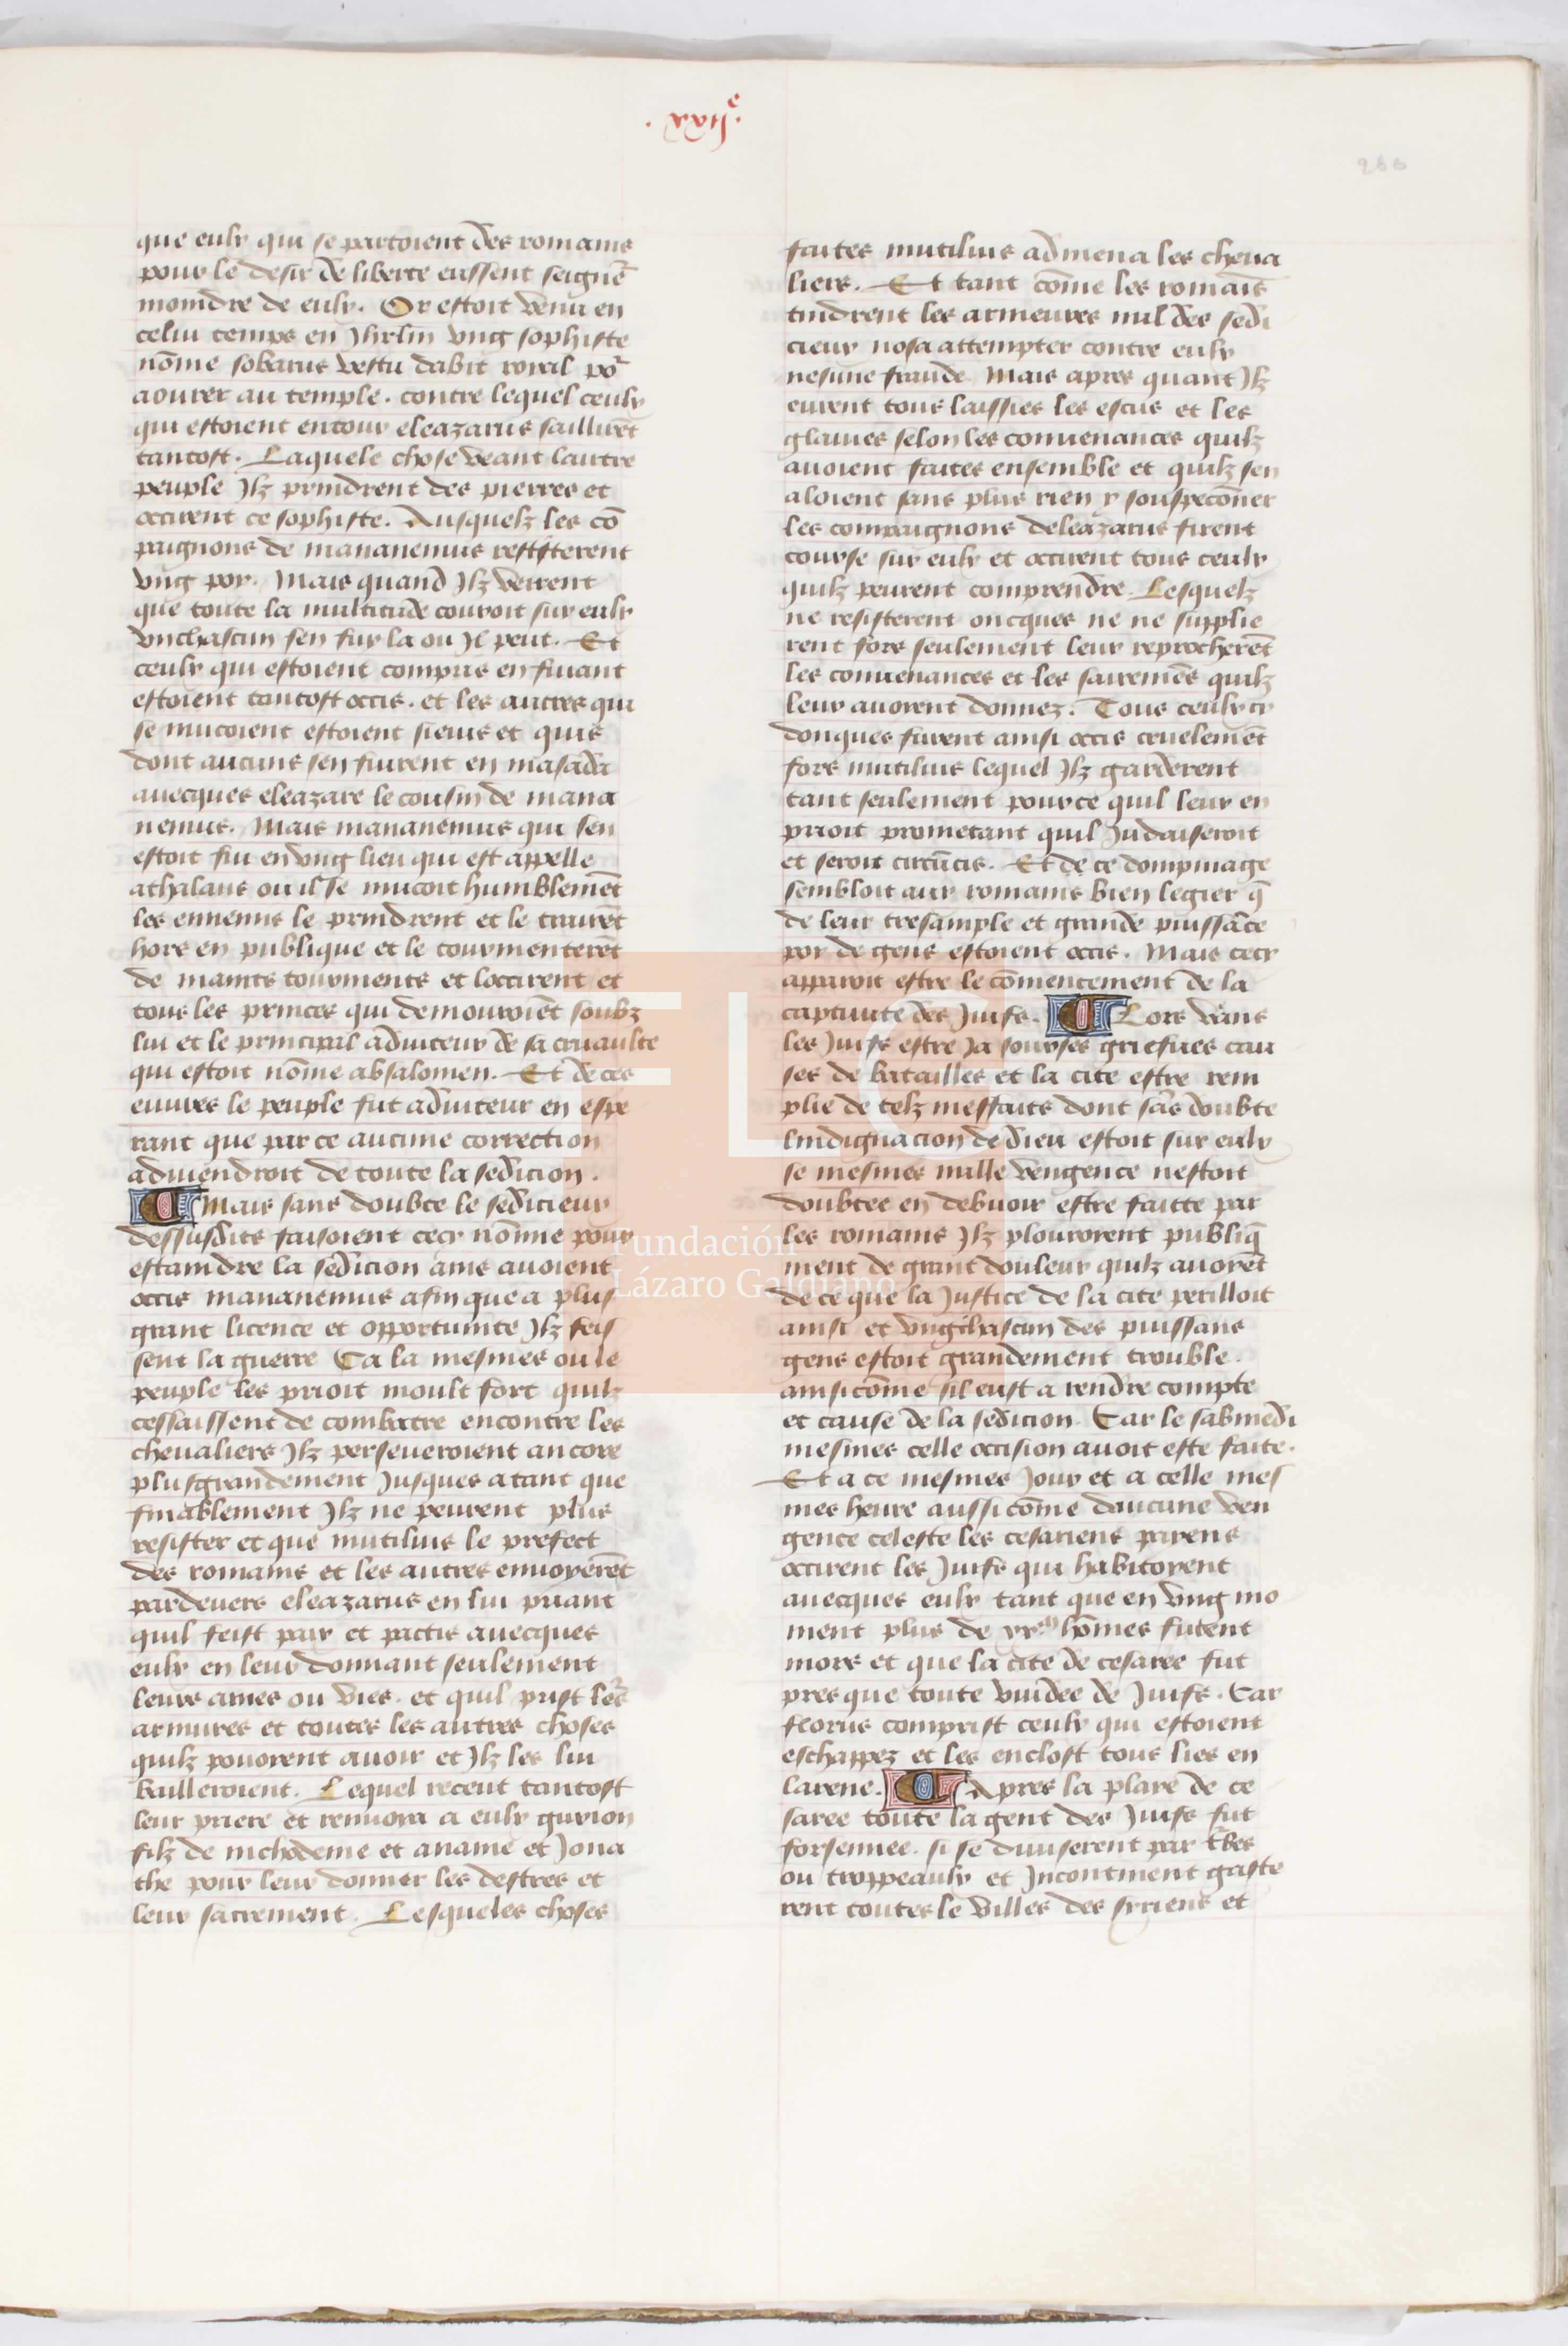 .xxiiȷ.e
266
que eulx qui se partoient des romains
pour le desir de liberte eussent seignẽ
moindre de eulx. Or estoit venu en
celui temps en Jhrlm vng sophiste
nõme sobarus vestu dabit roial po᷑
aourer au temple. contre lequel ceulx
qui estoient entour eleazarus saillirẽt
tantost. Laquele chose veant lautre
peuple Jlz prindrent des pierres et
occirent ce sophiste. Ausquelz les cõ
paignons de mananemus resisterent
vng poy. Mais quand Jlz veirent
que toute la multitude couroit sur eulx
vnchascun sen fuy la ou Jl peut. Et
ceulx qui estoient compris en fuiant
estoient tantost occis. et les autres qui
se mucoient estoient sieuis et quis
dont aucuns sen fuirent en masada
auecques eleazare le cousin de mana
nemus. Mais mananemus qui sen
estoit fui en vng lieu qui est appelle
athalans ou il se mucoit humblemẽt
les ennemis le prindrent et le trairẽt
hors en publique et le tourmenterẽt
de maints tourments et loccirent et
tous les princes qui demouroiẽt soubz
lui et le principal aduiteur de sa cruaulte
qui estoit nõme absalomen. Et de ces
euures le peuple fut aduiteur en espe
rant que par ce aucune correction
aduiendroit de toute la sedicion.
Mais sans doubte le sedicieux
dessusdits faisoient cecy nõmie pour
estaindre la sedicion ains auoient
occis mananemus afin que a plus
grant licence et opportunite Jlz feis
sent la guerre Ca la mesmes ou le
peuple les prioit moult fort quilz
cessaissent de combatre encontre les
cheualiers Jlz perseueroient ancore
plusgrandement Jusques atant que
finablement Jlz ne peurent plus
resister et que mutilius le prefect
des romains et les autres enuoyerẽt
pardeuers eleazarus en lui priant
quil feist paix et pactis auecques
eulx en leur donnant seulement
leurs ames ou vies. et quil prist le᷑s
armures et toutes les autres choses
quilz pouoient auoir et Jlz les lui
bailleroient. Lequel receut tantost
leur priere et renuoya a eulx gurion
filz de nichodeme et aname et Jona
the pour leur donner les destres et
leur sacrement. Lesqueles choses
faites mutilius admena les cheua
liers. Et tant cõme les romaĩs
tindrent les armeures nul des sedi
cieux nosa attempter contre eulx
nesune fraude Mais apres quant Jlz
eurent tous laissies les escus et les
glaiues selon les conuenances quilz
auoient faites ensemble et quilz sen
aloient sans plus rien y souspecõner
les compaignons deleazarus firent
course sur eulx et occirent tous ceulx
quilz peurent comprendre. Lesquelz
ne resisterent oncques ne ne supplie
rent fors seulement leur reprocherẽt
les conuenances et les sairemẽs quilz
leur auoient donnez. Tous ceulx cy
donques furent ainsi occis cruelemẽt
fors mutilius lequel Jlz garderent
tant seulement pource quil leur en
prioit prometant quil Judaiseroit
et seroit circũcis. Et de ce dompmage
sembloit aux romains bien legier q̃
de leur tresample et grande puissãce
poy de gens estoient occis. Mais cecy
apparoit estre le cõmencement de la
captiuite des Juifs. Lors vains
les Juifs estre Ja sourses griefues cau
ses de batailles et la cite estre rem
plie de telz meffaits dont sãs doubte
lindignacion de dieu estoit sur eulx
se mesmes nulle vengence nestoit
doubtee en debuoir estre faitte par
les romains Jlz plouroient publiq̃
ment de grant douleur quilz auorẽt
de ce que la Justice de la cite perilloit
ainsi et vngchascun des puissans
gens estoit grandement trouble.
ainsi cõme sil eust a rendre compte
et cause de la sedicion. Car le sabmedi
mesmes celle occision auoit este faite.
Et a ce mesmes Jour et a celle mes
mes heure aussi cõme daucune ven
gence celeste les cesariens paiens
occirent les Juifs qui habitoyent
auecques eulx tant que en vng mo
ment plus de xx.m hõmes furent
mors et que la cite de cesaree fut
presque toute vuidee de Juifs. Car
florus comprist ceulx qui estoient
eschappez et les enclost tous lies en
larene. Apres la plaie de ce
saree toute la gent des Juifs fut
forsennee. si se diuiserent par t᷑bes
ou troppeaulx et Incontinent gaste
rent toutes le villes des syriens et
FLG
Fundación
Lázaro Galdiano